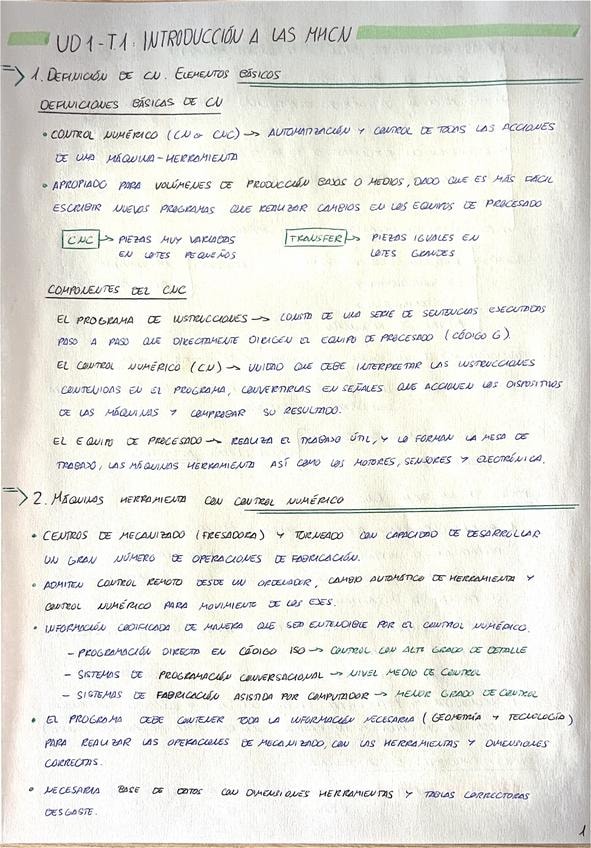 UD1-T.1: INTRODUCCIÓN A LAS MHCN
=> 1. DEFINICIÓN DE CN. ELEMENTOS BÁSICOS
DEFINICIONES BÁSICAS DE CN
• CONTROL NUMÉRICO (CN o CNC) → AUTOMATIZACIÓN Y CONTROL DE TODAS LAS ACCIONES
DE UNA MÁQUINA-HERRAMIENTA
• APROPIADO PARA VOLÚMENES DE PRODUCCIÓN BAJOS O MEDIOS, DADO QUE ES MÁS FÁCIL
ESCRIBIR NUEVOS PROGRAMAS QUE REALIZAR CAMBIOS EN LOS EQUIPOS DE PROCESADO
CNC → PIEZAS MUY VARIADAS TRANSFER → PIEZAS IGUALES EN
EN LOTES PEQUEÑOS LOTES GRANDES
COMPONENTES DEL CNC
EL PROGRAMA DE INSTRUCCIONES → CONSTA DE UNA SERIE DE SENTENCIAS EJECUTADAS
PASO A PASO QUE DIRECTAMENTE DIRIGEN EL EQUIPO DE PROCESADO (CÓDIGO G).
EL CONTROL NUMÉRICO (CN) → UNIDAD QUE DEBE INTERPRETAR LAS INSTRUCCIONES
CONTENIDAS EN EL PROGRAMA, CONVERTIRLAS EN SEÑALES QUE ACCIONEN LOS DISPOSITIVOS
DE LAS MÁQUINAS Y COMPROBAR SU RESULTADO.
EL EQUIPO DE PROCESADO → REALIZA EL TRABAJO ÚTIL, Y LO FORMAN LA MESA DE
TRABAJO, LAS MÁQUINAS HERRAMIENTA ASÍ COMO LOS MOTORES, SENSORES Y ELECTRÓNICA.
=> 2. MÁQUINAS HERRAMIENTA CON CONTROL NUMÉRICO
• CENTROS DE MECANIZADO (FRESADORA) Y TORNEADO CON CAPACIDAD DE DESARROLLAR
UN GRAN NÚMERO DE OPERACIONES DE FABRICACIÓN.
• ADMITEN CONTROL REMOTO DESDE UN ORDENADOR, CAMBIO AUTOMÁTICO DE HERRAMIENTA Y
CONTROL NUMÉRICO PARA MOVIMIENTO DE LOS EJES.
• INFORMACIÓN CODIFICADA DE MANERA QUE SEA ENTENDIBLE POR EL CONTROL NUMÉRICO.
- PROGRAMACIÓN DIRECTA EN CÓDIGO ISO → CONTROL CON ALTO GRADO DE DETALLE
- SISTEMAS DE PROGRAMACIÓN CONVERSACIONAL → NIVEL MEDIO DE CONTROL
- SISTEMAS DE FABRICACIÓN ASISTIDA POR COMPUTADOR → MENOR GRADO DE CONTROL
• EL PROGRAMA DEBE CONTENER TODA LA INFORMACIÓN NECESARIA (GEOMETRÍA Y TECNOLOGÍA)
PARA REALIZAR LAS OPERACIONES DE MECANIZADO, CON LAS HERRAMIENTAS Y DIMENSIONES
CORRECTAS.
• NECESARIA BASE DE DATOS CON DIMENSIONES HERRAMIENTAS Y TABLAS CORRECTORAS
DESGASTE.
1